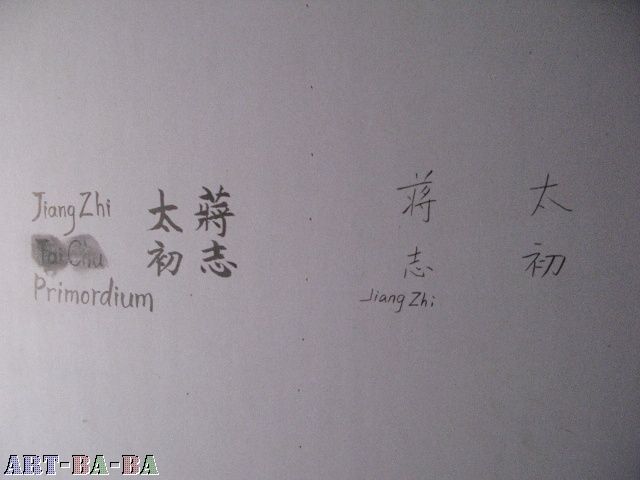 Jiang Zhi
Tai Chu
Primordium
蔣志
太初
太初
蔣志
Jiang Zhi
ART-BA-BA